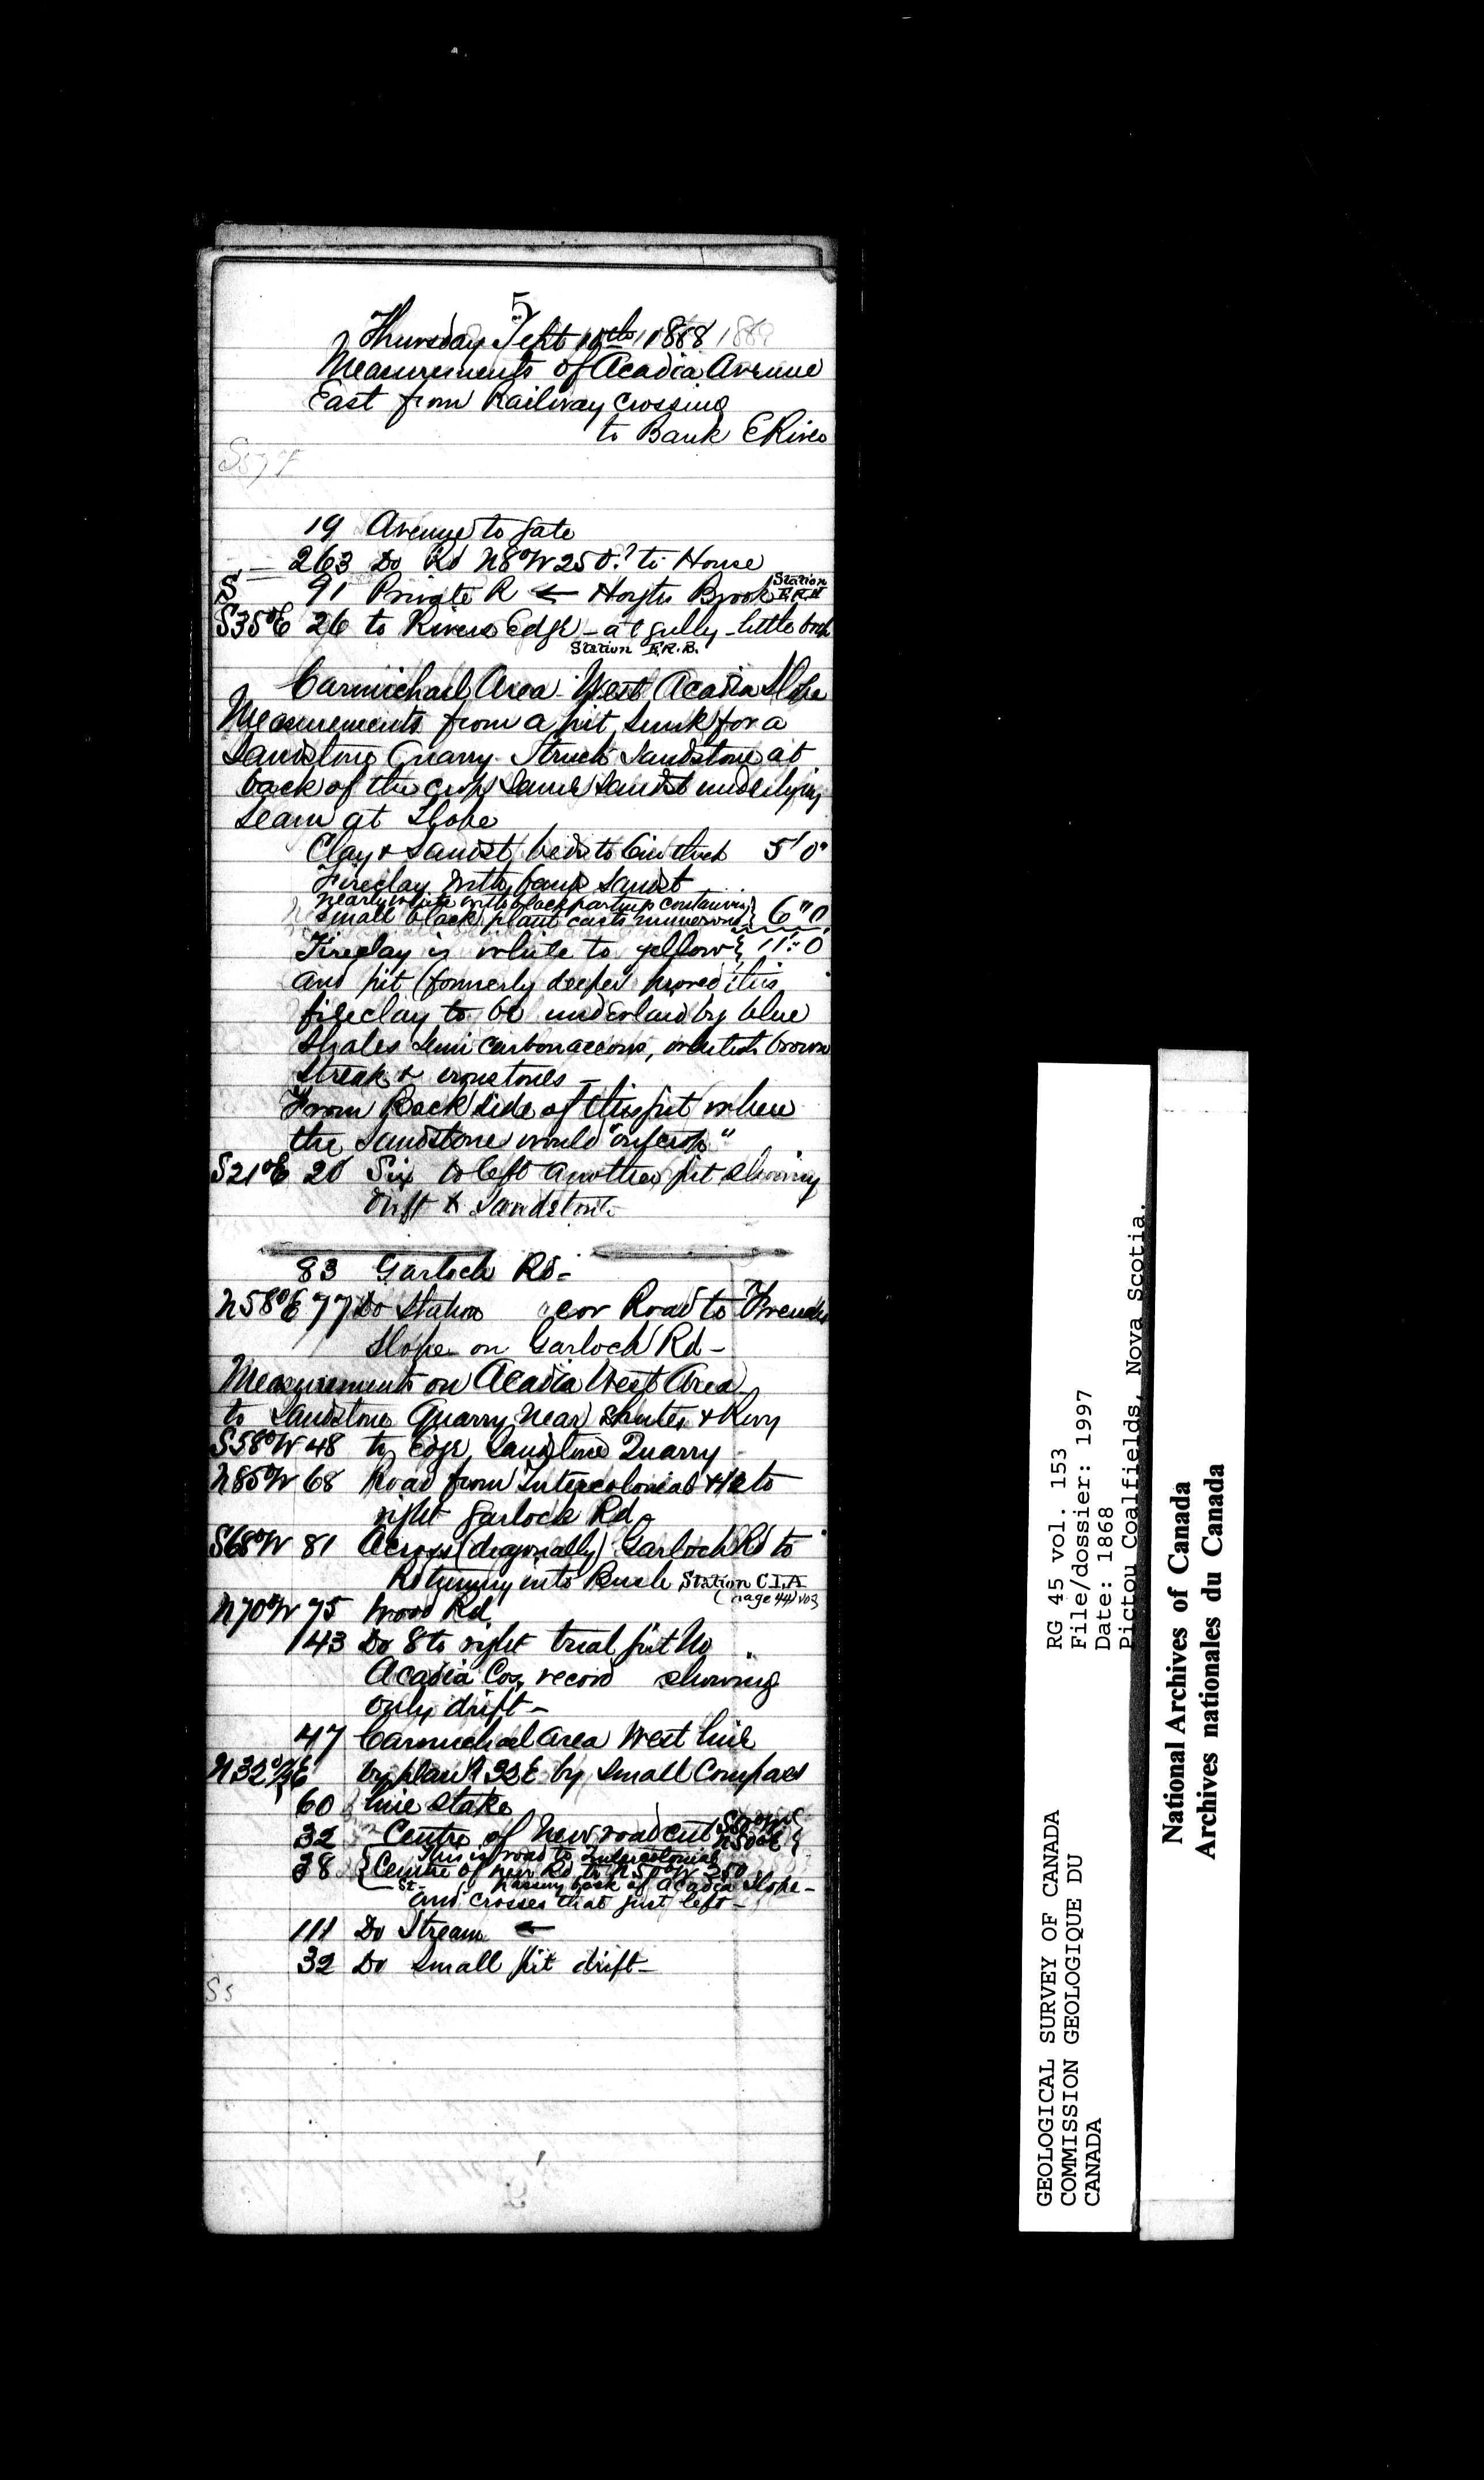 5
Thursday Sept 10th 1868 1868
Measurements of Acadia Avenue
East from Railway Crossing
to Bank E River
S57E
19 Avenue to gate
263 Do Rd N8°W 250? to House
S 91 Private R ← Brook Station E.R.H
S35°E 26 to Rivers Edge - at gully - little brook
Station E.R.B.
Carmichael Area West Acadia Slope
Measurements from a pit sunk for a
Sandstone Quarry Struck Sandstone at
back of the crop same Sandst underlying
seam at Slope
Clay & Sandst beds to 6in thick 5'0"
Fireclay with Sandst
nearly white with black partings containing
small black plant casts numerous } 6"0
Fireclay is white to yellow } 11"0
and pit (formerly deeper proved this
fireclay to be underlaid by blue
Shales semi carbonaceous, brown
streak & ironstones -
From Back side of this pit where
the Sandstone would "outcrop"
S21°E 20 Six to left another pit showing
drift & Sandstone
83 Garloch Rd -
N58°E 77 Do Station cor Road to French
Slope on Garloch Rd -
Measurements on Acadia West Area
to Sandstone Quarry near Shutes & Rwy
S58°W 48 to Edge Sandstone Quarry
N85°W 68 Road from Intercolonial & to
right Garlock Rd
S68°W 81 Across (diagonally) Garloch Rd to
Rd turning into Bush Station C.I.A
(page 44)
N70°W 75 Wood Rd
143 Do 8 to right trial pit No
Acadia Cos record showing
only drift -
47 Carmichael area West line
N32°E by plan N 32 E by Small Compass
60 line stake
32 Centre of New road cut S50°W N50°E }
This is road to Intercolonial
28 { Centre of new Rd to N50°W 250
St - Passing back of Acadia Slope -
and crosses that just left -
111 Do Stream ←
32 Do small pit drift -
S5
GEOLOGICAL SURVEY OF CANADA
COMMISSION GEOLOGIQUE DU
CANADA
RG 45 vol. 153
File/dossier: 1997
Date: 1868
Pictou Coalfields, Nova Scotia.
National Archives of Canada
Archives nationales du Canada